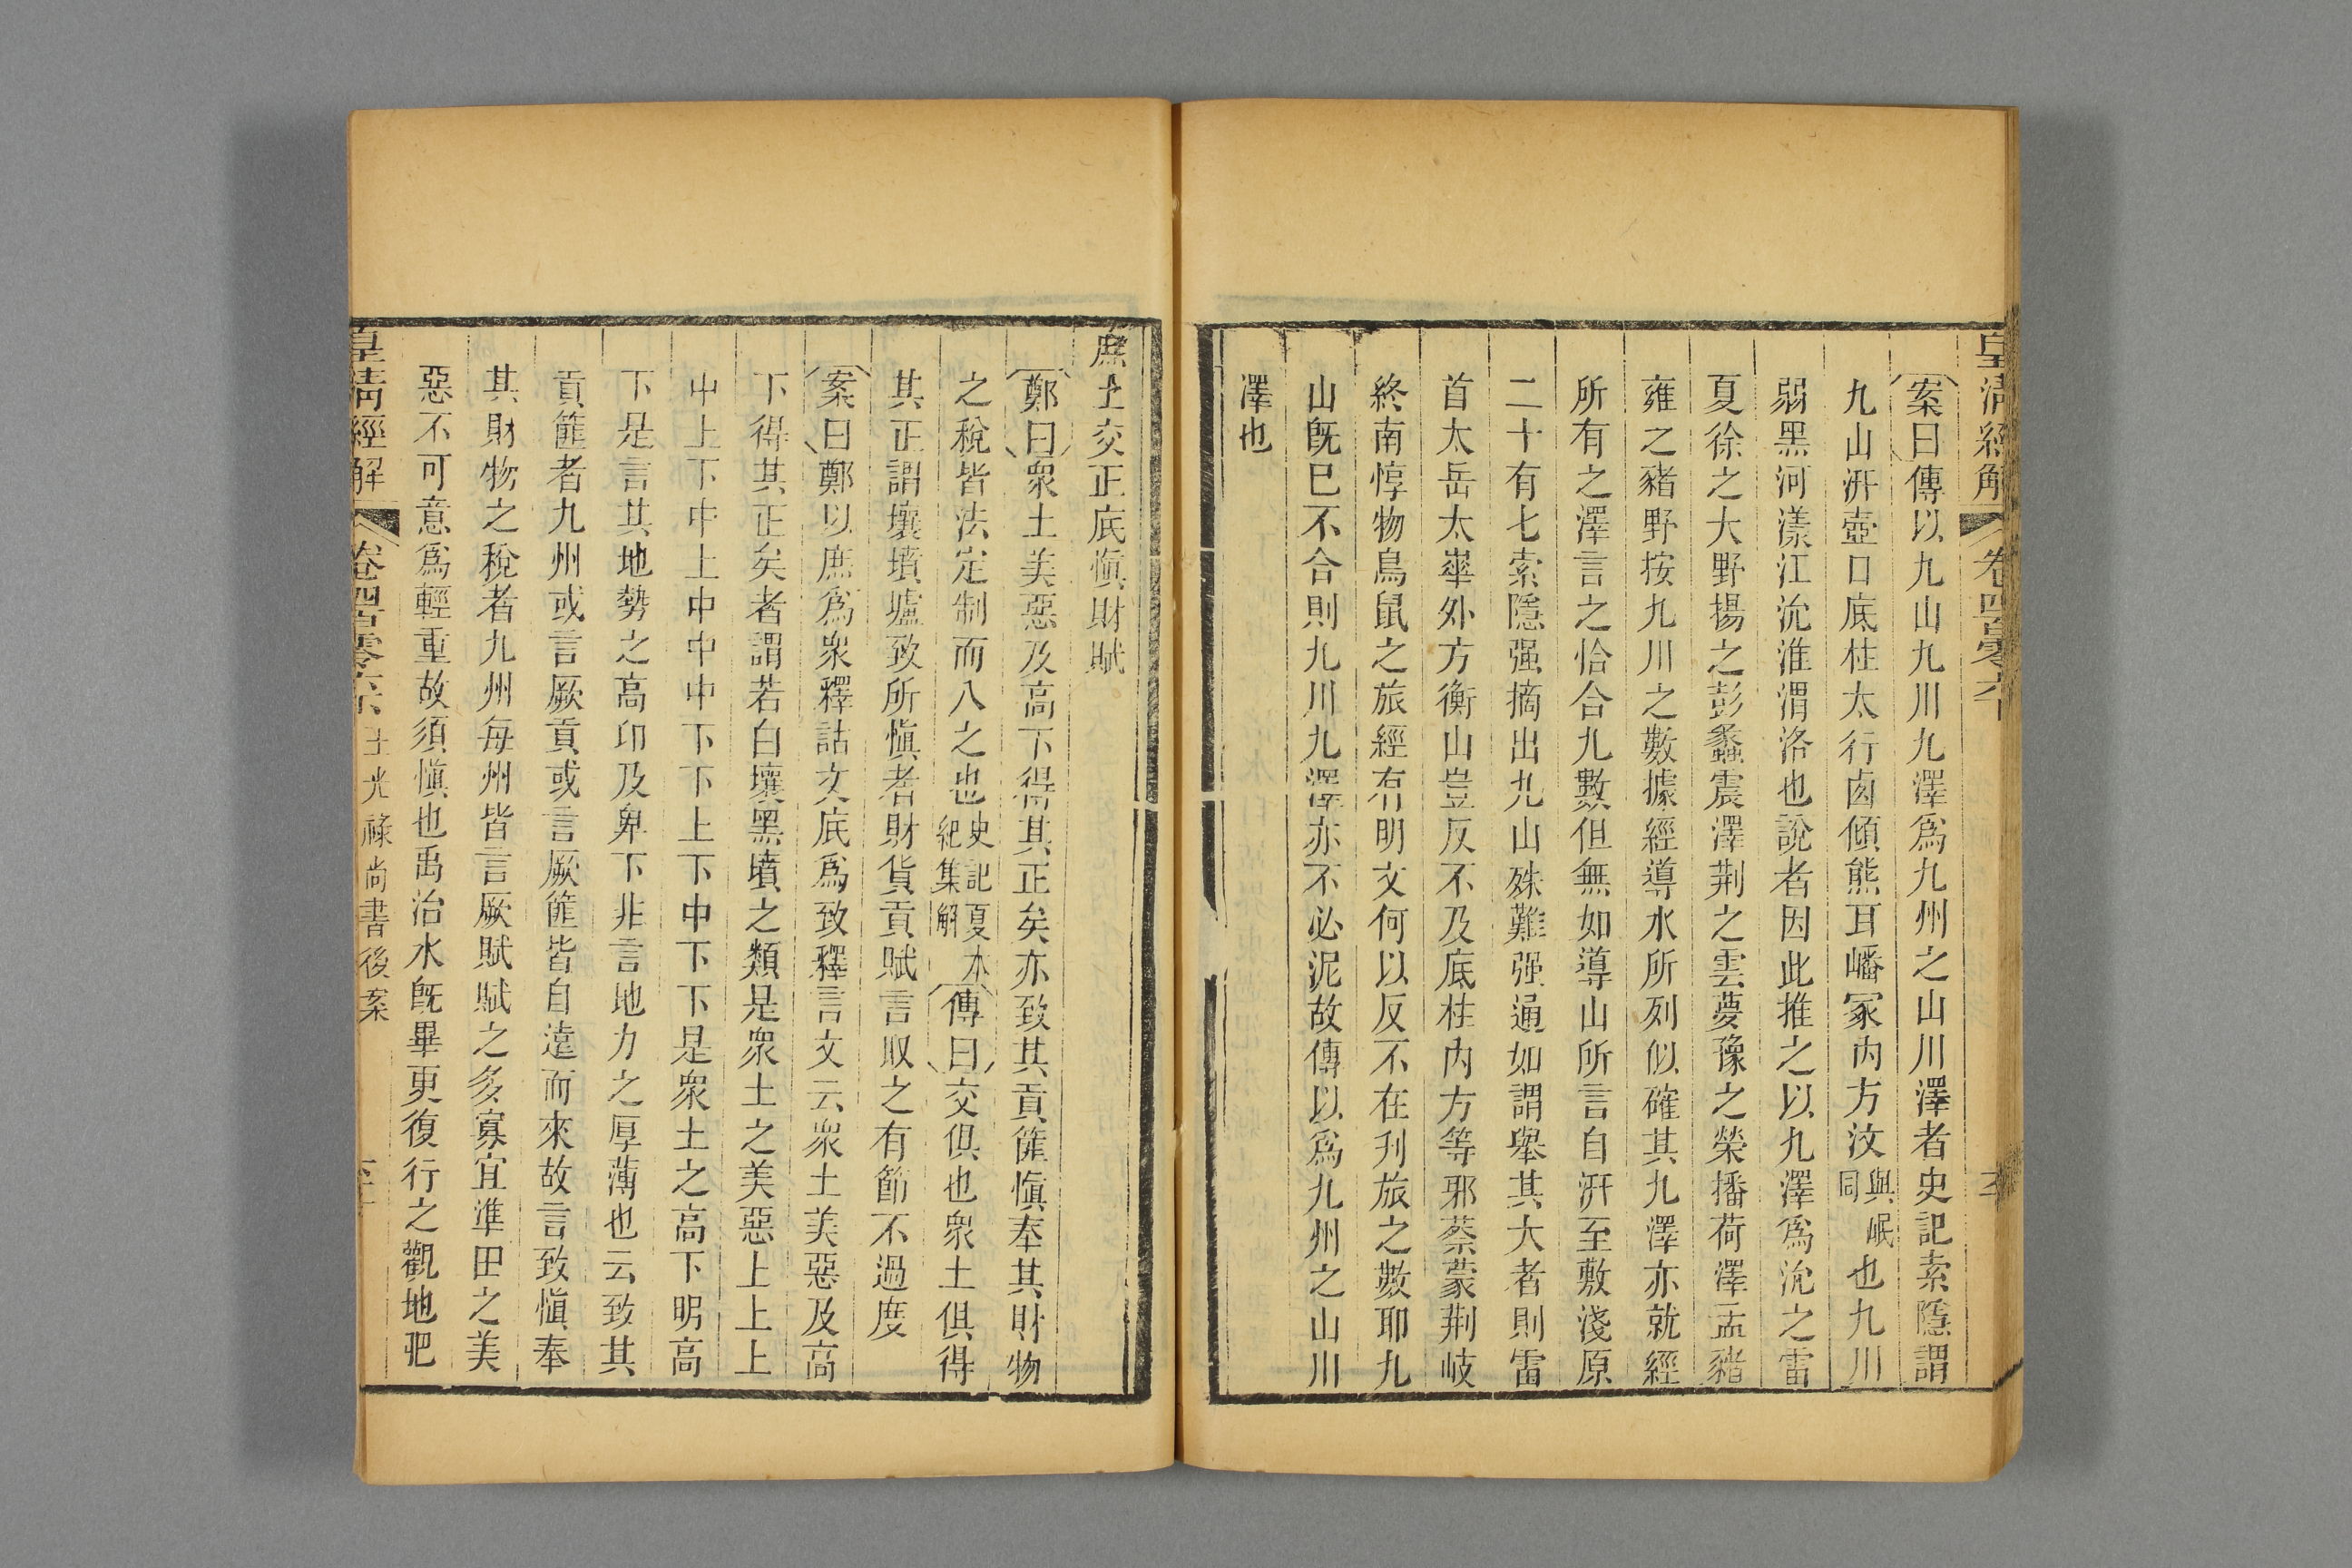 皇清經解 卷四百零六
案曰傳以九山九川九澤爲九州之山川澤者史記索隱謂
九山汧壺口底柱太行西傾熊耳嶓冢內方汶與岷同也九川
弱黑河漾江沇淮渭洛也說者因此推之以九澤爲沇之雷
夏徐之大野揚之彭蠡震澤荆之雲夢豫之滎播荷澤孟豬
雍之豬野按九川之數據經導水所列似確其九澤亦就經
所有之澤言之恰合九數但無如導山所言自汧至敷淺原
二十有七索隱强摘出九山殊難强通如謂舉其大者則雷
首太岳太華外方衡山豈反不及底柱內方等邪蔡蒙荆岐
終南惇物鳥鼠之旅經有明文何以反不在刊旅之數耶九
山旣已不合則九川九澤亦不必泥故傳以爲九州之山川
澤也
庶土交正底愼財賦
鄭曰衆土美惡及高下得其正矣亦致其貢篚愼奉其財物
之稅皆法定制而入之也史記夏本紀集解傳曰交俱也衆土俱得
其正謂壤墳壚致所愼者財貨貢賦言取之有節不過度
案曰鄭以庶爲衆釋詁文底爲致釋言文云衆土美惡及高
下得其正矣者謂若白壤黑墳之類是衆土之美惡上上上
中上下中上中中中下下上下中下下是衆土之高下明高
下是言其地勢之高卬及卑下非言地力之厚薄也云致其
貢篚者九州或言厥貢或言厥篚皆自遠而來故言致愼奉
其財物之稅者九州每州皆言厥賦賦之多寡宜準田之美
惡不可意爲輕重故須愼也禹治水旣畢更復行之觀地肥
皇清經解 卷四百零六 王光祿尚書後案